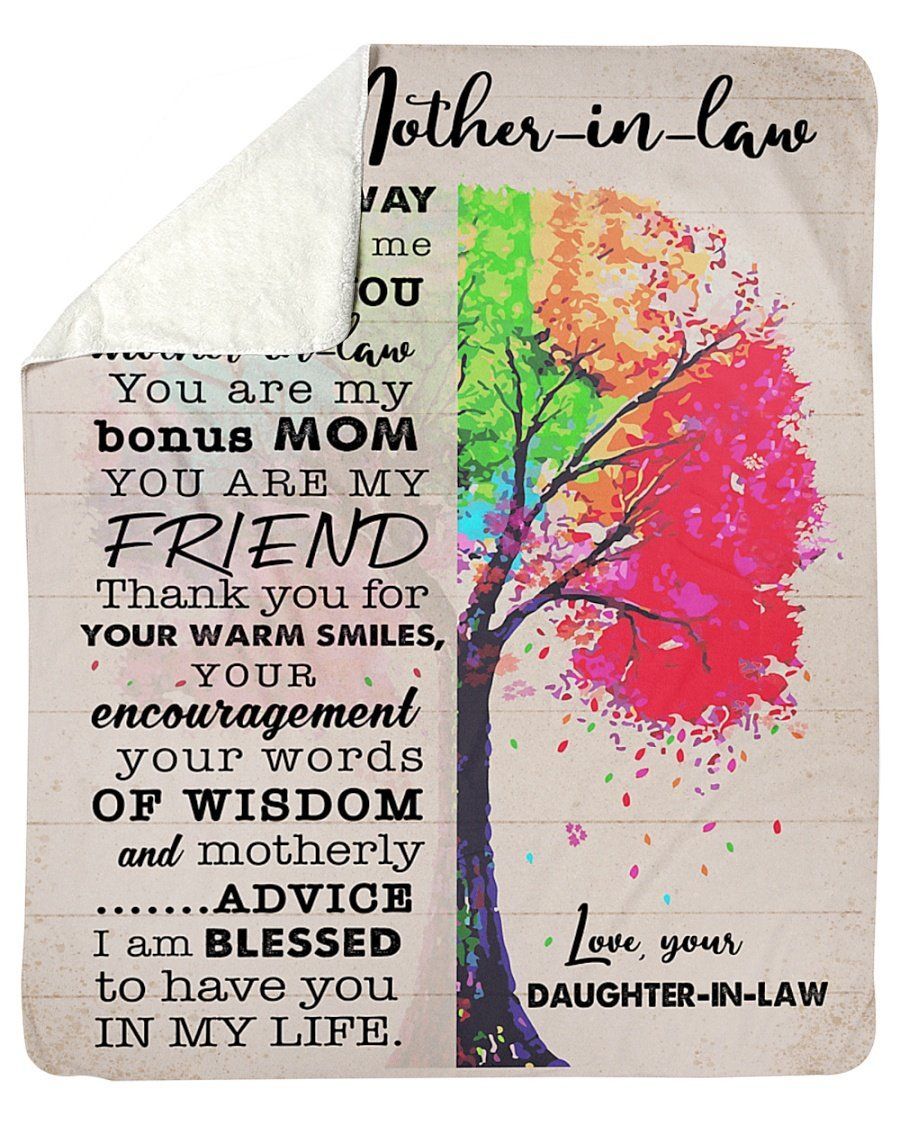 Mother-in-law
WAY
me
YOU
mother-in-law
You are my
bonus MOM
YOU ARE MY
FRIEND
Thank you for
YOUR WARM SMILES,
YOUR
encouragement
your words
OF WISDOM
and motherly
.......ADVICE
I am BLESSED
to have you
IN MY LIFE.
Love, your
DAUGHTER-IN-LAW